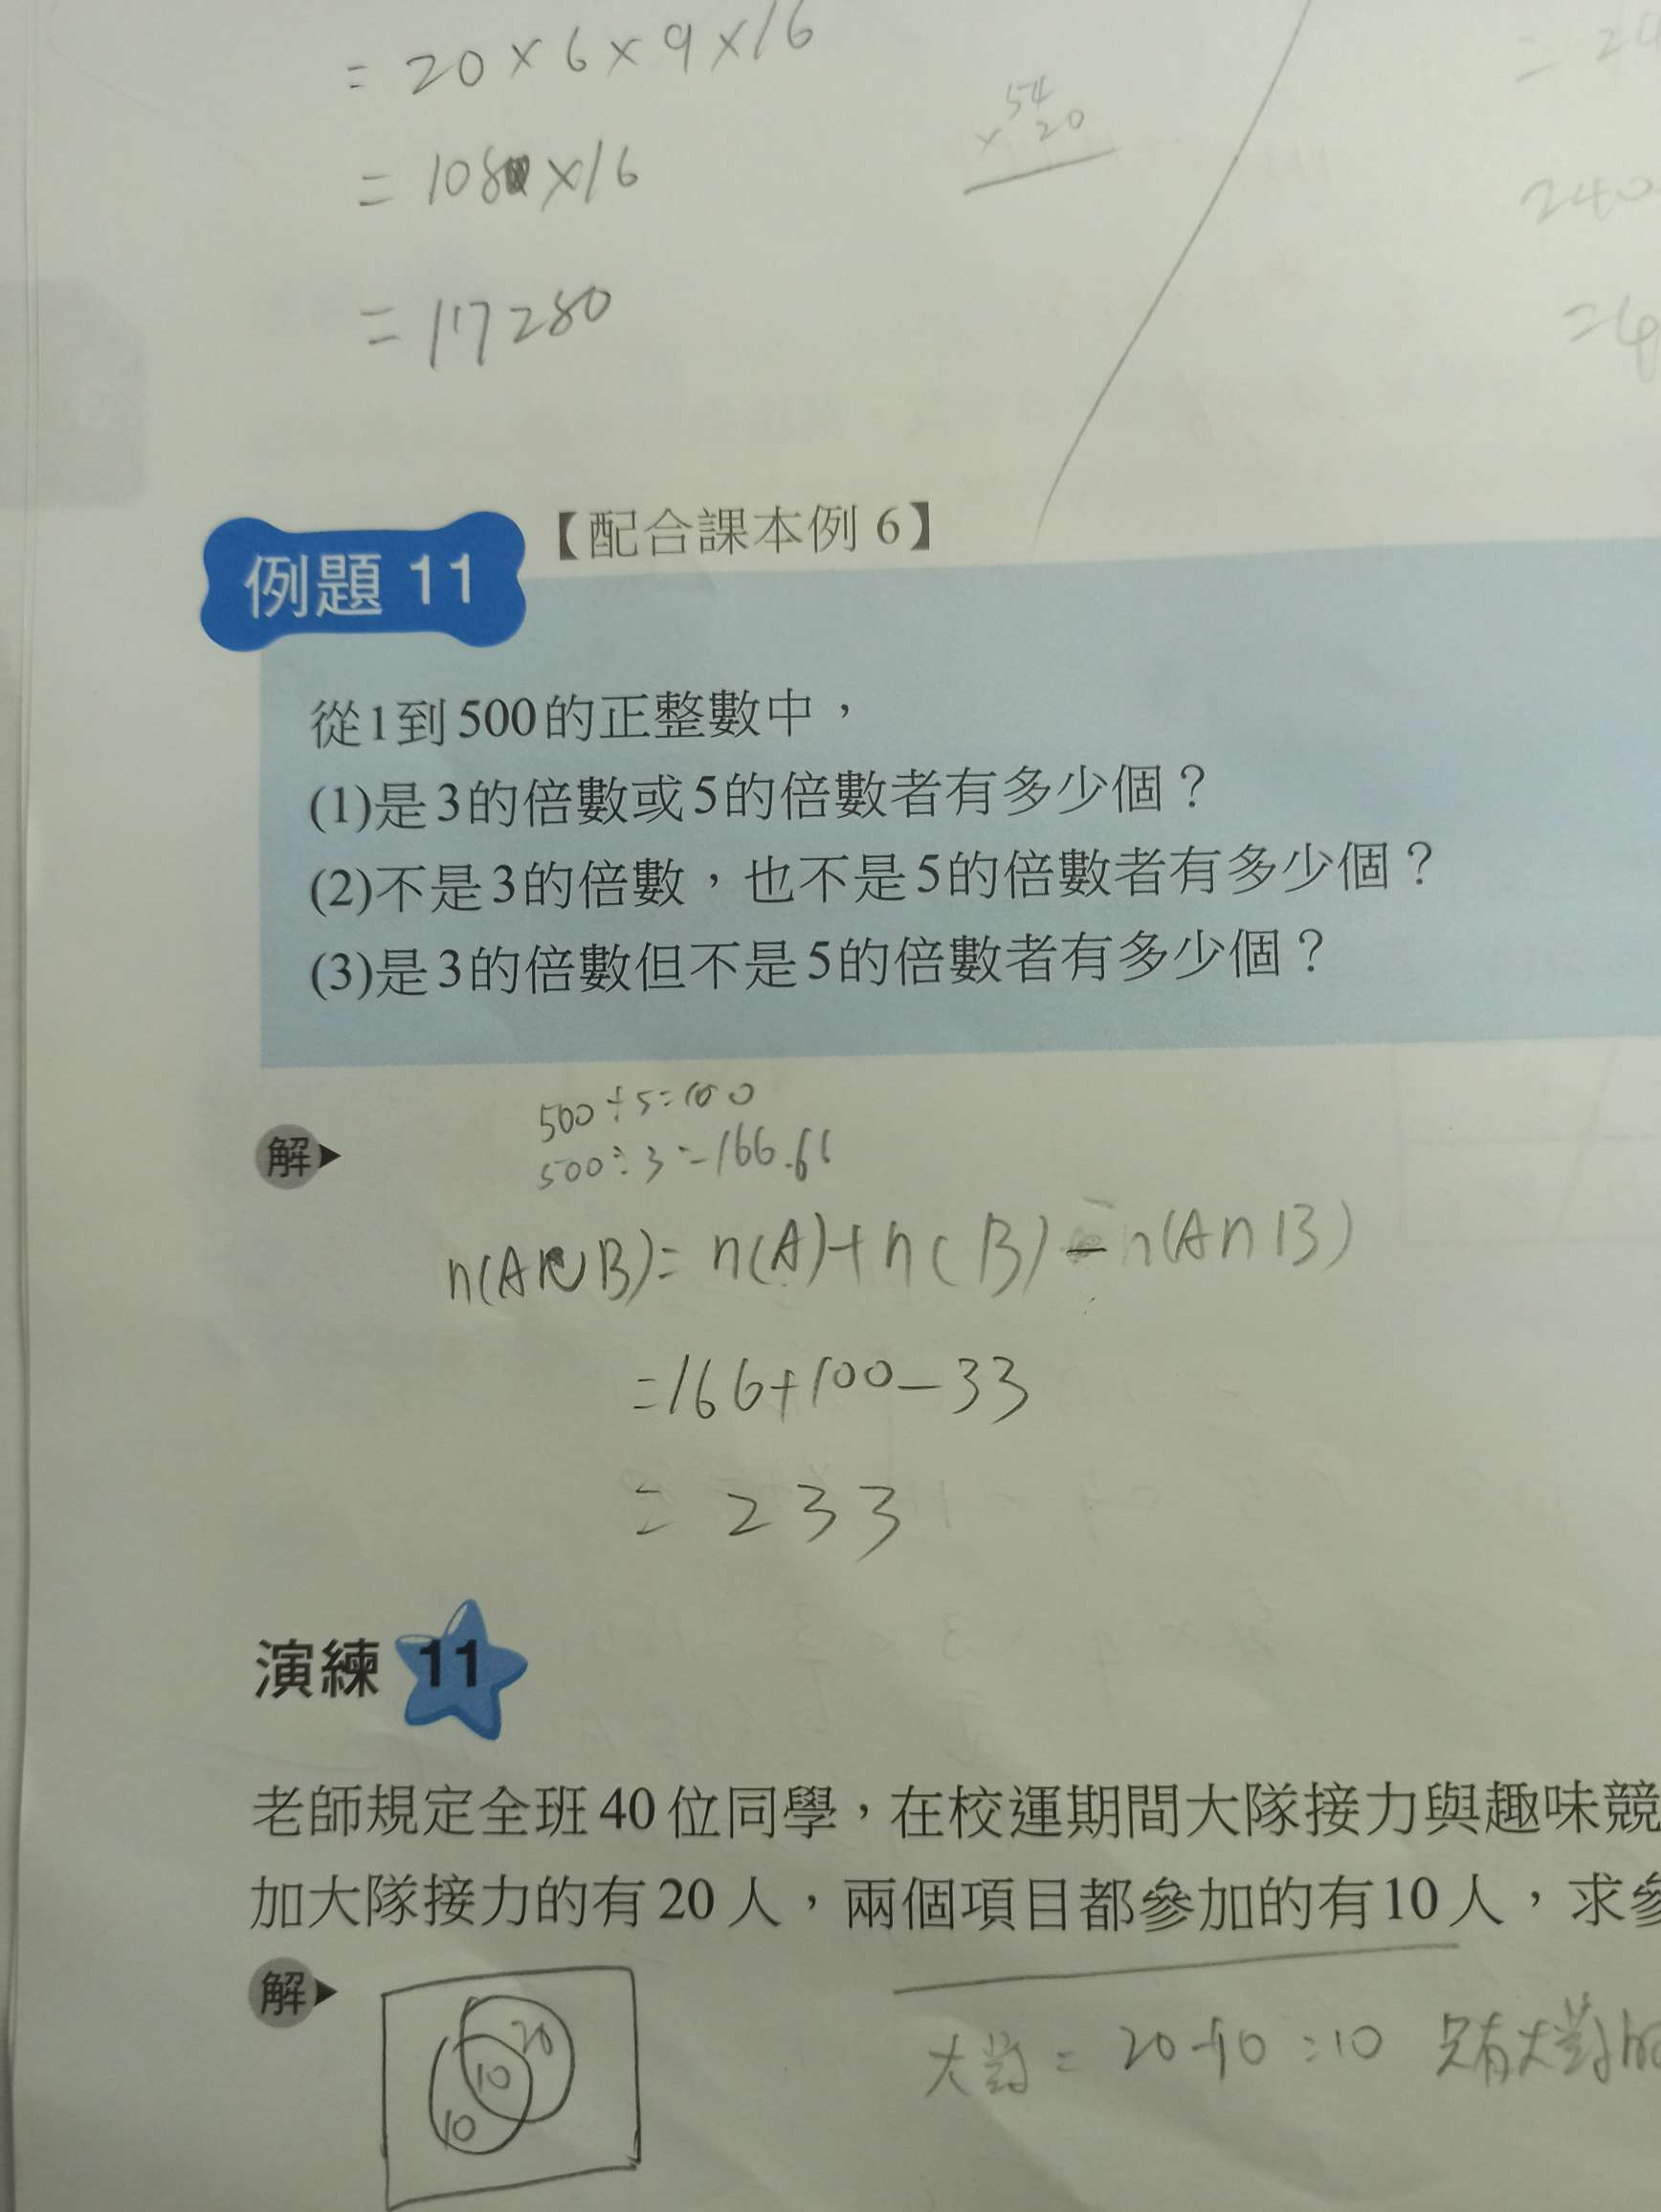 = 20 × 6 × 9 × 16
54
× 20
= 24
= 1080 × 16
240
= 17280
例題 11 【配合課本例 6】
從1到500的正整數中，
(1)是3的倍數或5的倍數者有多少個？
(2)不是3的倍數，也不是5的倍數者有多少個？
(3)是3的倍數但不是5的倍數者有多少個？
500÷5=100
解
500÷3=166.66
n(A∪B)=n(A)+n(B)-n(A∩B)
=166+100-33
=233
演練 11
老師規定全班40位同學，在校運期間大隊接力與趣味競
加大隊接力的有20人，兩個項目都參加的有10人，求參
解
20
10
10
20-10=10 只有大